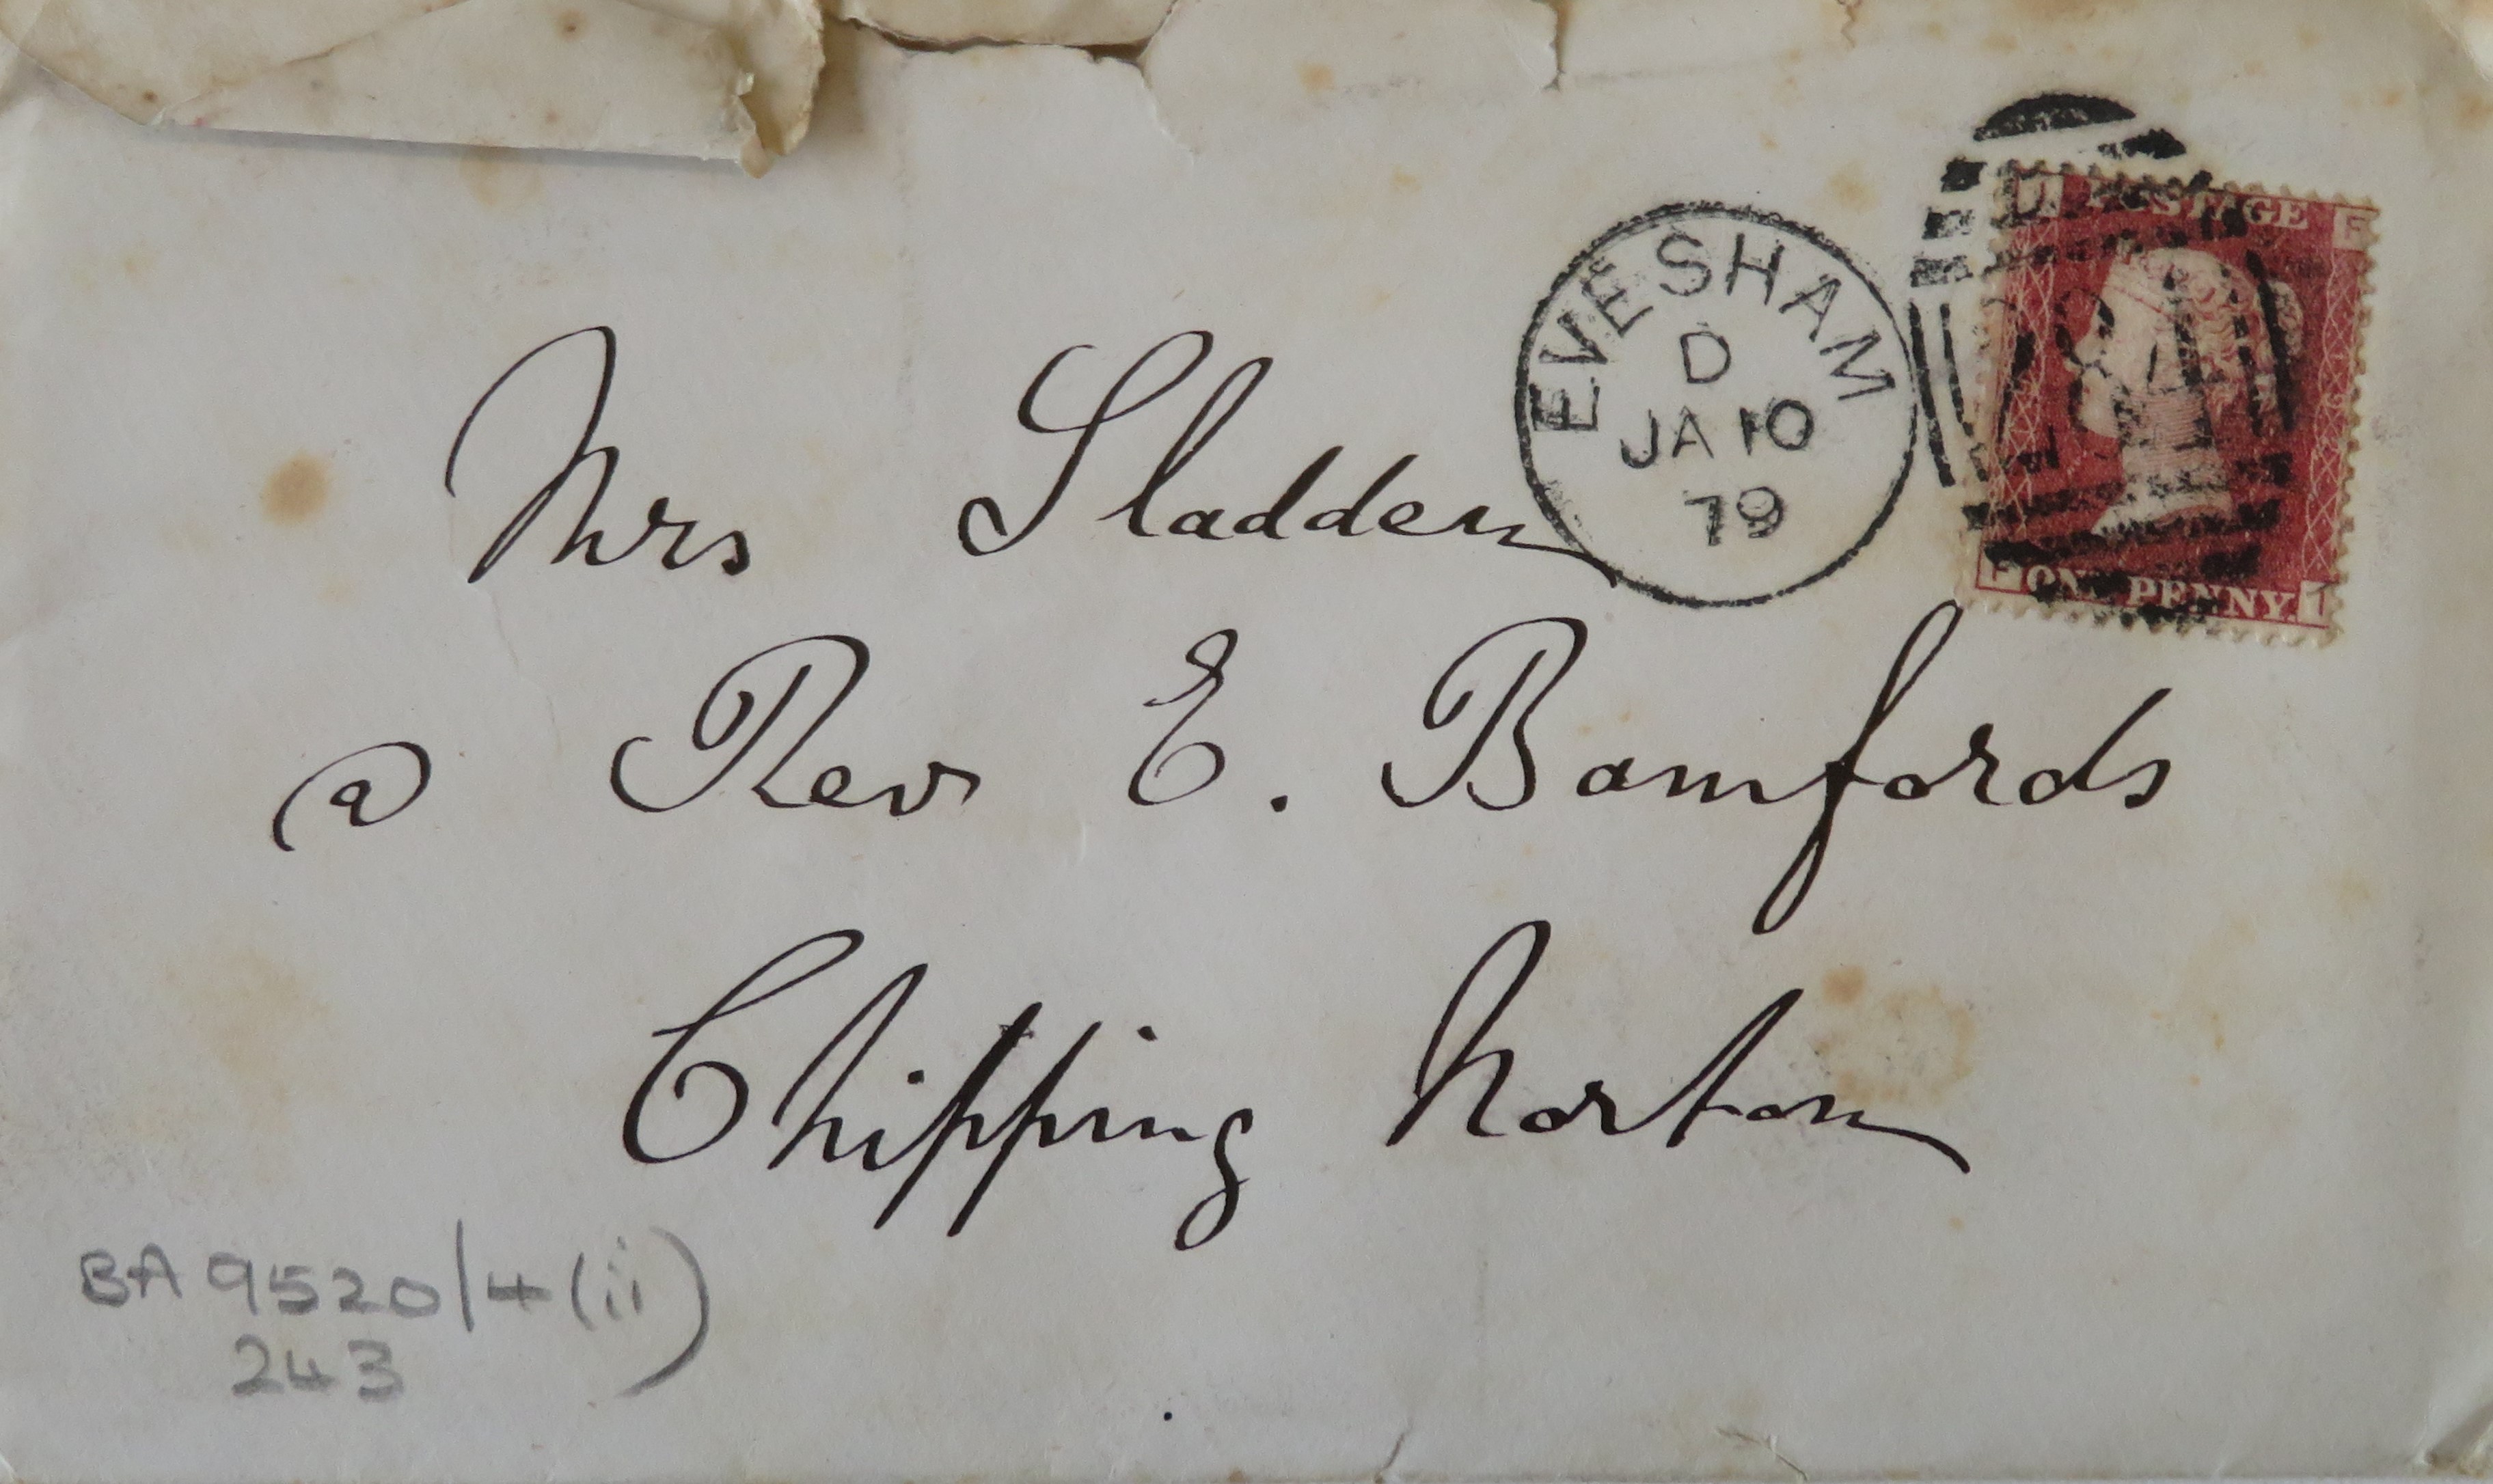 EVESHAM
D
JA 10
79
POSTAGE
ONE PENNY.
Mrs Sladden
@ Rev E. Bamfords
Chipping Norton
BA 9520/4(ii)
243